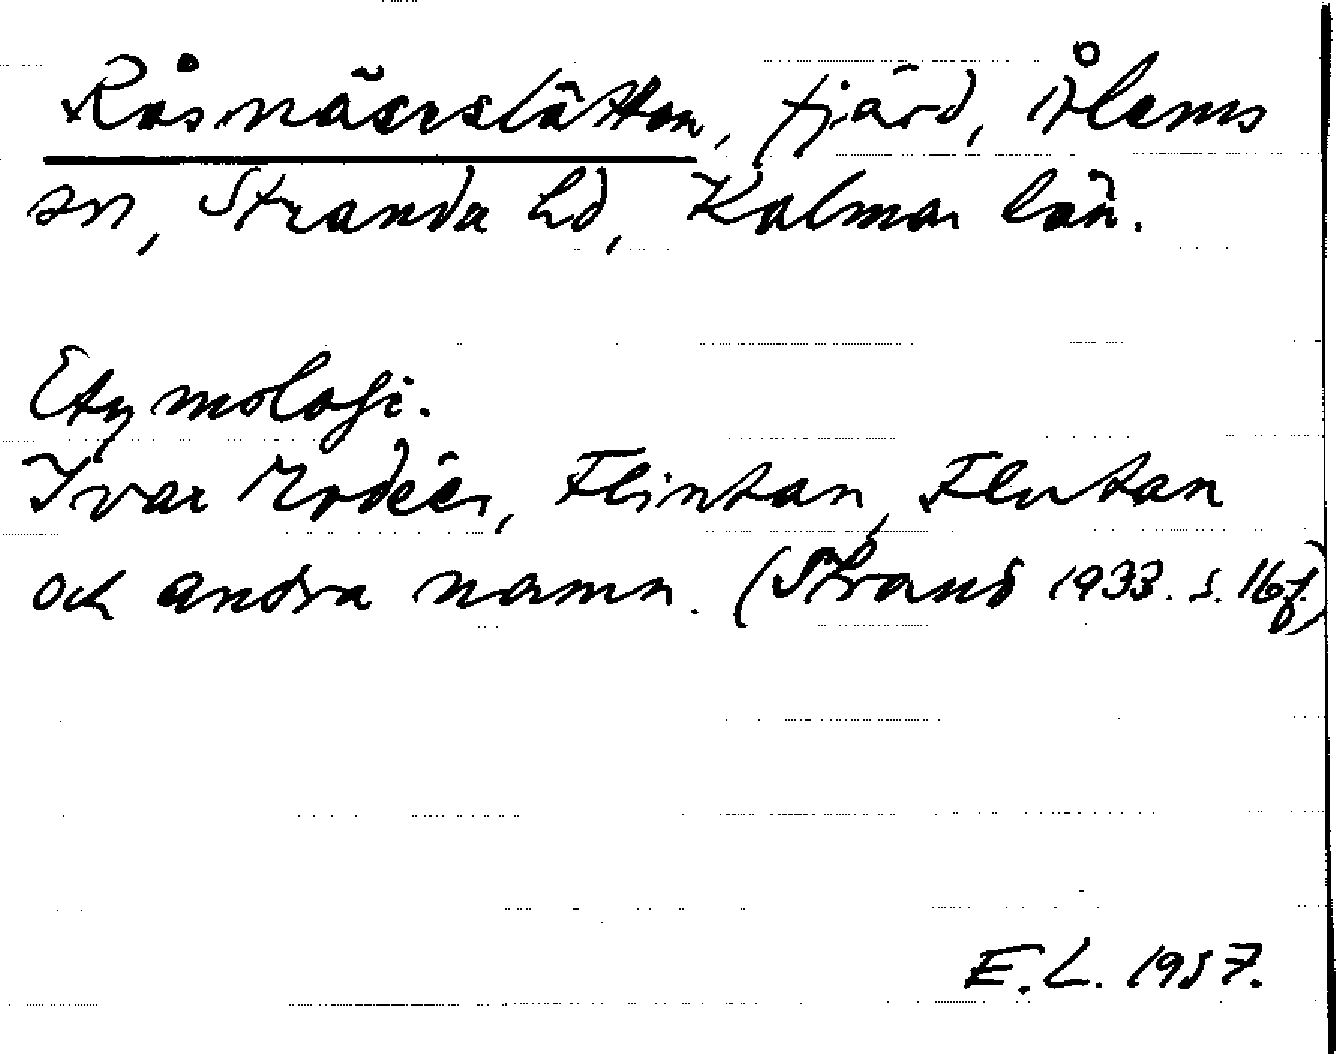 Råsnäsrslätten, fjärd, Ålems
sn, Stranda hd, Kalmar län.
Etymologi.
Ivar Modéer, Flintan, Flutan
och andra namn. (Strand 1933. s. 16f.)
E.L. 1957.